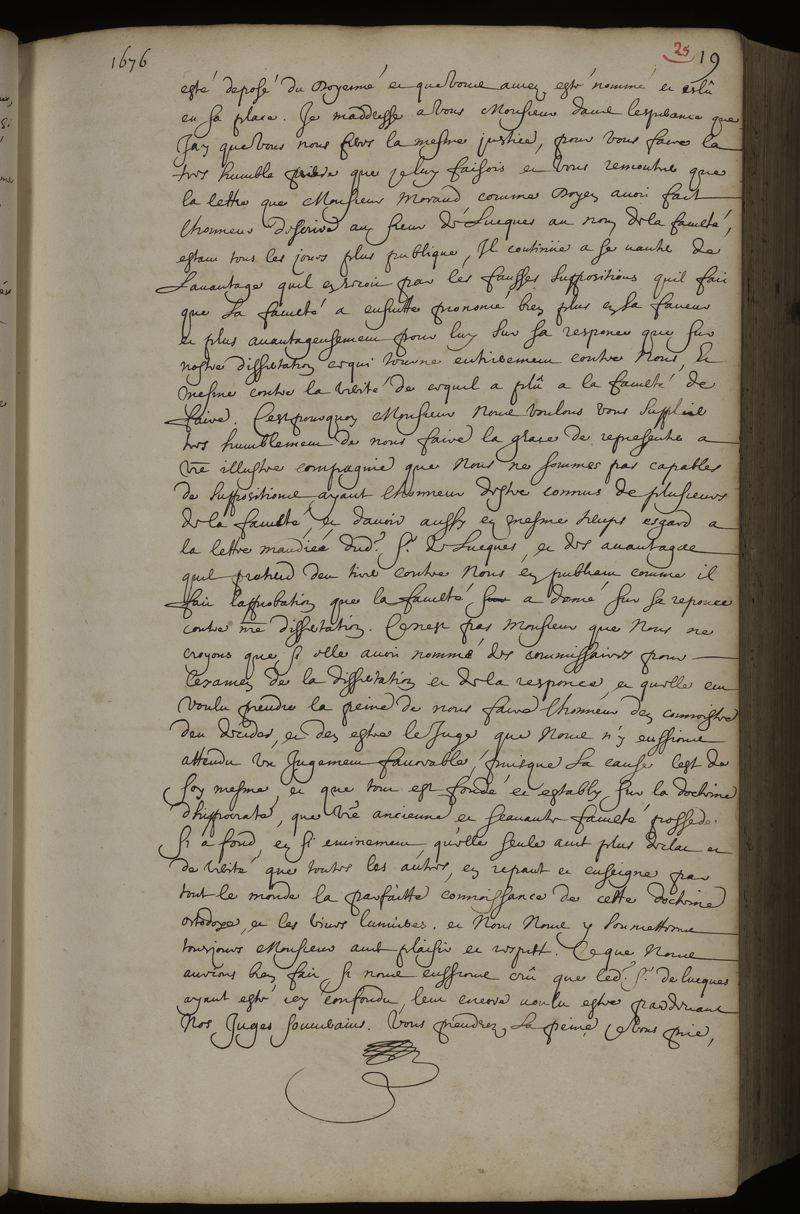 1676
25 19
esté deposé du Doyenné et que vous avez esté nommé et eslû
en sa place. Je maddresse a vous Monsieur dans lesperance que
Jay que vous nous ferez la mesme justice, pour vous faire la
tres humble priere que je luy faisois et vous remontrer que
la lettre que Monsieur Morand comme Doyen avoit fait
lhonneur descrire au sieur de Lucques au nom de la faculté,
estant tous les jours plus publique, Il continue a se vanter de
Lavantage quil en recoit par les fausses suppositions quil fait
que La faculté a ensuitte prononcé bien plus en sa faveur
et plus avantageusement pour luy sur sa responce que sur
nostre dissertation ce qui tourne entierement contre Nous, Et
mesme contre la verité de ce quil a plû a la faculté de
faire. Cest pourquoy Monsieur Nous voulons vous supplier
tres humblement de nous faire la grace de representer a
vre illustre compagnie que Nous ne sommes pas capables
de suppositions ayant lhonneur destre connus de plusieurs
de la faculté, et davoir aussy en mesme temps esgard a
la lettre mandiée dud. Sr. de Lucques, et des avantages
quil pretend den tirer contre Nous en publiant comme il
fait lapprobation que la faculté a donné sur sa reponce
contre nre dissertation. Ce nest pas Monsieur que Nous ne
croyons que si elle avoit nommé des commissaires pour
Lexamen de la dissertation et de la responce, et quelle eut
voulu prendre la peine de nous faire lhonneur den connoistre
den decider, et den estre le Juge que Nous n'y eussions
attendu un Jugement favorable, puisque La cause lest de
soy mesme, et que tout est fondé et estably sur la doctrine
d'hippocrate, que vre ancienne et scavante faculté possede
si a fond, et si eminement qu'elle seule avec plus declat et
de verité que toutes les autres, en repant et enseigne par
tout le monde la parfaitte connoissance de cette doctrine
ortodoxe, et les vives lumieres. et Nous Nous y soumettrons
tousjours Monsieur avec plaisir et respect. Ce que Nous
aurions bien fait, si nous eussions crû que led. Sr. de lucques
ayant esté icy confondu, leut encore voulu estre pardevant
Nos Juges souverains. Vous prendrez La peine, je vous prie,